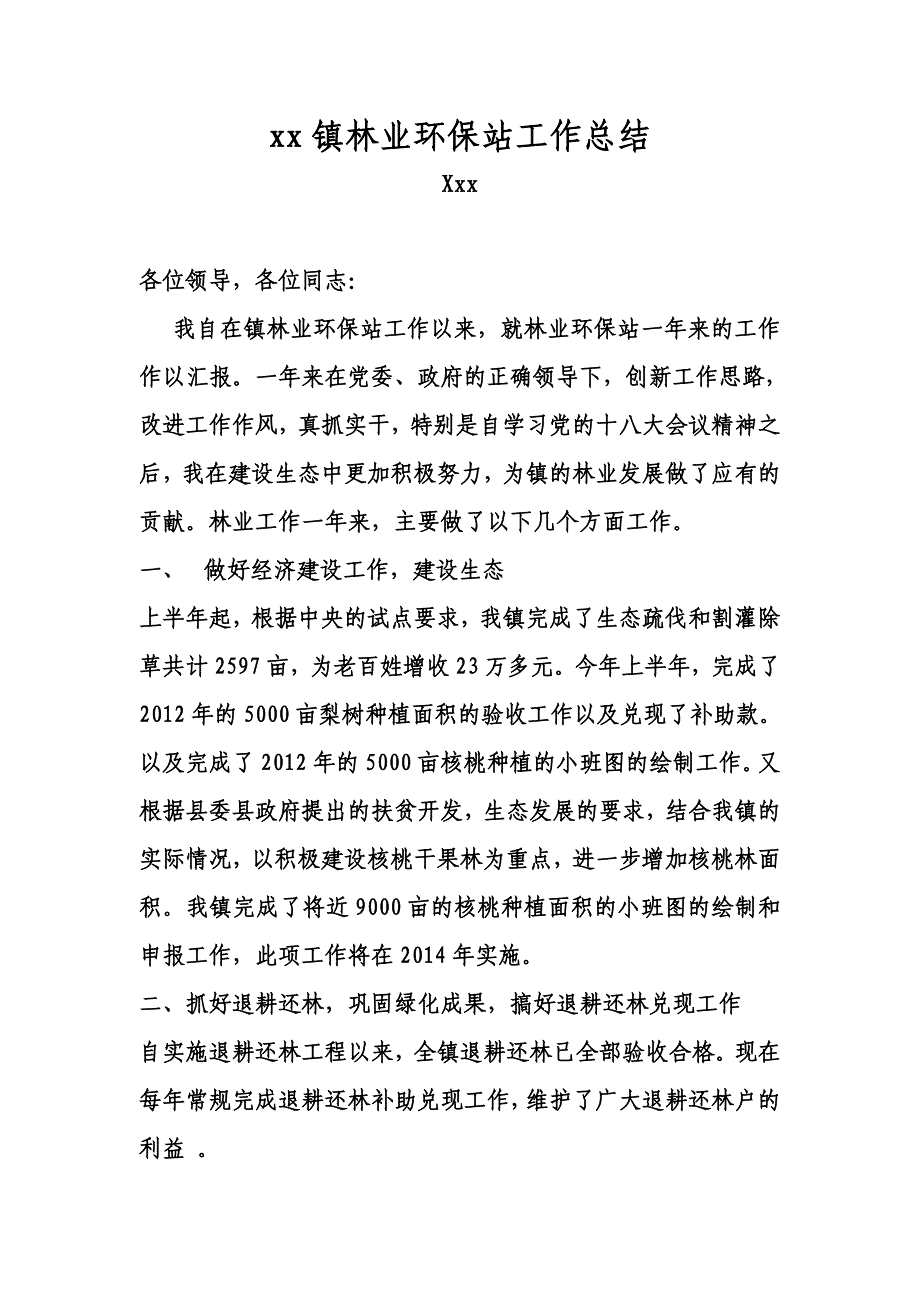 xx镇林业环保站工作总结
Xxx
各位领导，各位同志：
我自在镇林业环保站工作以来，就林业环保站一年来的工作
作以汇报。一年来在党委、政府的正确领导下，创新工作思路，
改进工作作风，真抓实干，特别是自学习党的十八大会议精神之
后，我在建设生态中更加积极努力，为镇的林业发展做了应有的
贡献。林业工作一年来，主要做了以下几个方面工作。
一、 做好经济建设工作，建设生态
上半年起，根据中央的试点要求，我镇完成了生态疏伐和割灌除
草共计2597亩，为老百姓增收23万多元。今年上半年，完成了
2012年的5000亩梨树种植面积的验收工作以及兑现了补助款。
以及完成了2012年的5000亩核桃种植的小班图的绘制工作。又
根据县委县政府提出的扶贫开发，生态发展的要求，结合我镇的
实际情况，以积极建设核桃干果林为重点，进一步增加核桃林面
积。我镇完成了将近9000亩的核桃种植面积的小班图的绘制和
申报工作，此项工作将在2014年实施。
二、抓好退耕还林，巩固绿化成果，搞好退耕还林兑现工作
自实施退耕还林工程以来，全镇退耕还林已全部验收合格。现在
每年常规完成退耕还林补助兑现工作，维护了广大退耕还林户的
利益 。